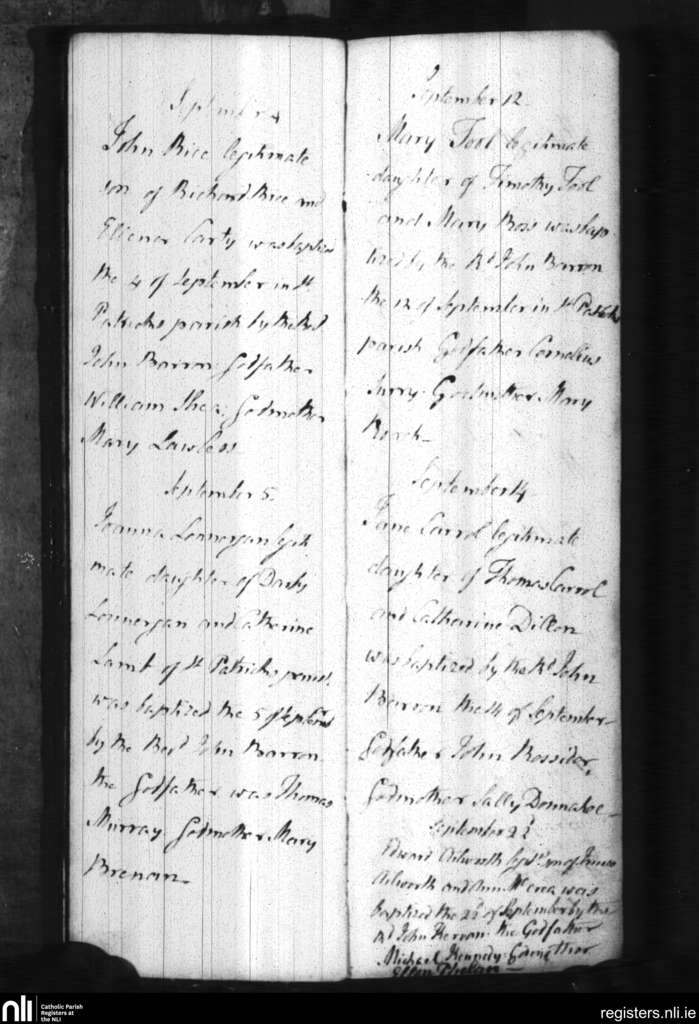 September 4
John Rice legitimate
son of Richard Rice and
Elienor Carty was baptized
the 4 of September in St
Patricks parish by the Revd
John Barron: Godfather
William Shea: Godmother
Mary Lawless
September 5.
Joanna Lonnergan legiti
mate daughter of Darby
Lonnergan and Catherine
Lamb of St Patricks parish.
was baptized the 5 of September
by the Revd John Barron
the Godfather was Thomas
Murray Godmother Mary
Brenan
September 12
Mary Tool legitimate
daughter of Timothy Tool
and Mary Ross was bap
tized by the Rd John Barron
the 12 of September in St Patks
parish Godfather Cornelius
Godmother Mary
September 14
Jane Carrol legitimate
daughter of Thomas Carrol
and Catherine Dillon
was baptized by the Rd John
Barron the 14 of September
Godfather John Rossiter,
Godmother Sally Donnahoe
September 22d
Edward legitt son of
and Ann was
baptized the 22d of September by the
Rd John the Godfather
Michael Kennedy: Godmother
Ellen Phelan
nli
Catholic Parish
Registers at
the NLI
registers.nli.ie